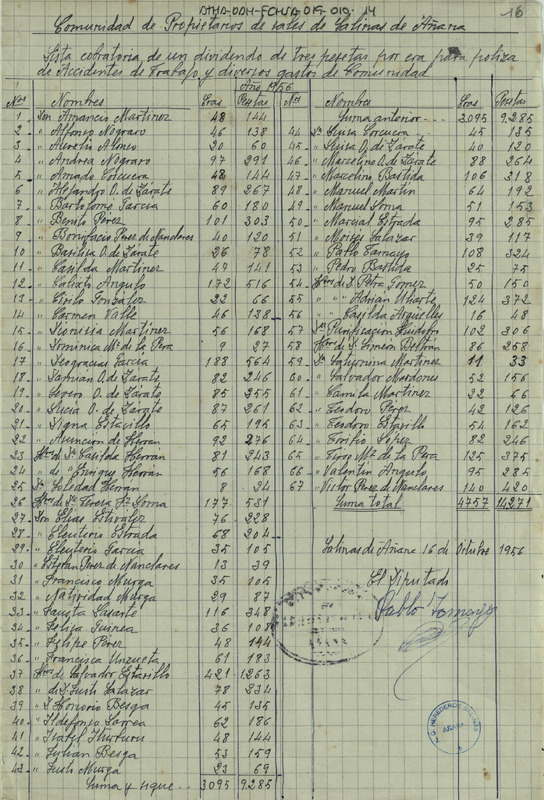 ATHA-DAH-FCHSA-019-019-14
16
Comunidad de Propietarios de sales de Salinas de Añana
Lista cobratoria de un dividendo de tres pesetas por era para poliza
de Accidentes de Trabajo y diversos gastos de Comunidad
Año 1956
Nos Nombres Eras Psetas
1 Don Amancio Martinez 48 144
2 " Alfonso Nograro 46 138
3 " Aurelio Alonso 20 60
4 " Andrea Nograro 97 291
5 " Amado Corcuera 48 144
6 " Alejandro O. de Zarate 89 267
7 " Bartolomé Garcia 60 180
8 " Benito Pérez 101 303
9 " Bonifacio Perez de Nanclares 40 120
10 " Basilisa O. de Zarate 26 78
11 " Casilda Martinez 47 141
12 " Calixto Angulo 172 516
13 " Cirilo Gonzalez 22 66
14 " Carmen Valle 46 138
15 " Dionisia Martinez 56 168
16 " Dominica Mª de la Pera 9 27
17 " Deogracias Garcia 188 564
18 " Damian O. de Zarate 82 246
19 " Severo O. de Zarate 85 255
20 " Lucia O. de Zarate 87 261
21 " Digna Estavillo 65 195
22 " Asuncion de Herran 92 276
23 Hros de Dª Casilda Herran 81 243
24 " de " Enrique Herran 56 168
25 Dª Soledad Herran 8 24
26 Hros de Dª Teresa Fz Loma 177 531
27 Don Elias Estivalez 76 228
28 " Eleuterio Estrada 68 204
29 " Eleuterio Garcia 35 105
30 " Esteban Perez de Nanclares 13 39
31 " Francisco Murga 35 105
32 " Natividad Murga 29 87
33 " Fausta Lasarte 116 348
34 " Felisa Guinea 36 108
35 " Felipe Pérez 48 144
36 " Francisca Unzueta 61 183
37 Hros de Salvador Estavillo 421 1263
38 " de D. Justo Salazar 78 234
39 " D Honorio Besga 45 135
40 " Ildefonso Larrea 62 186
41 " Isabel Ihurburu 48 144
42 " Julian Besga 53 159
43 " Justo Murga 23 69
Suma y sigue 3095 9.285
Nos Nombres Eras Psetas
Suma anterior 3095 9.285
44 Dª Luisa Corcuera 45 135
45 " Luisa O. de Zarate 40 120
46 " Marcelino O. de Zarate 88 264
47 " Marcelino Bastida 106 318
48 " Manuel Martin 64 192
49 " Manuel Loma 51 153
50 " Marcial Estrada 95 285
51 " Moisés Salazar 39 117
52 " Pablo Tamayo 108 324
53 " Pedro Bastida 25 75
54 Hros de D. Petra Gomez 50 150
55 " " Adrian Uharte 124 372
56 " Casilda Argüelles 16 48
57 Dª Purificación Huidobro 102 306
58 Hros de D. Simeón Beltrán 86 258
59 Dª Saturnina Martinez 11 33
60 " Salvador Mardones 52 156
61 " Camila Martinez 22 66
62 " Teodoro Pérez 42 126
63 " Teodoro Estavillo 54 162
64 " Torifio Lopez 82 246
65 " Tirso Mª de la Pera 125 375
66 " Valentin Angulo 95 285
67 " Victor Perez de Nanclares 140 420
Suma total 4757 14271
Salinas de Añana 16 de Octubre 1956
El Diputado
Pablo Tamayo
AÑANA